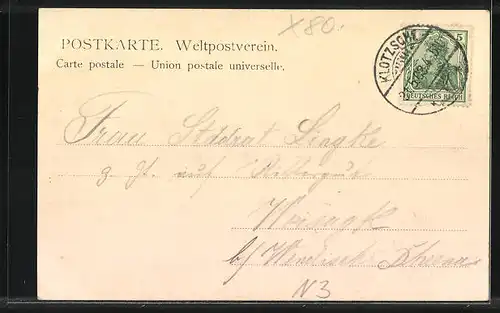 X80.
POSTKARTE. Weltpostverein.
Carte postale — Union postale universelle.
5
KLOTZSCHE
DEUTSCHES REICH
Frau Stdtrat Lingke
z. Zt. auf Rittergut
b/ Windisch
N3